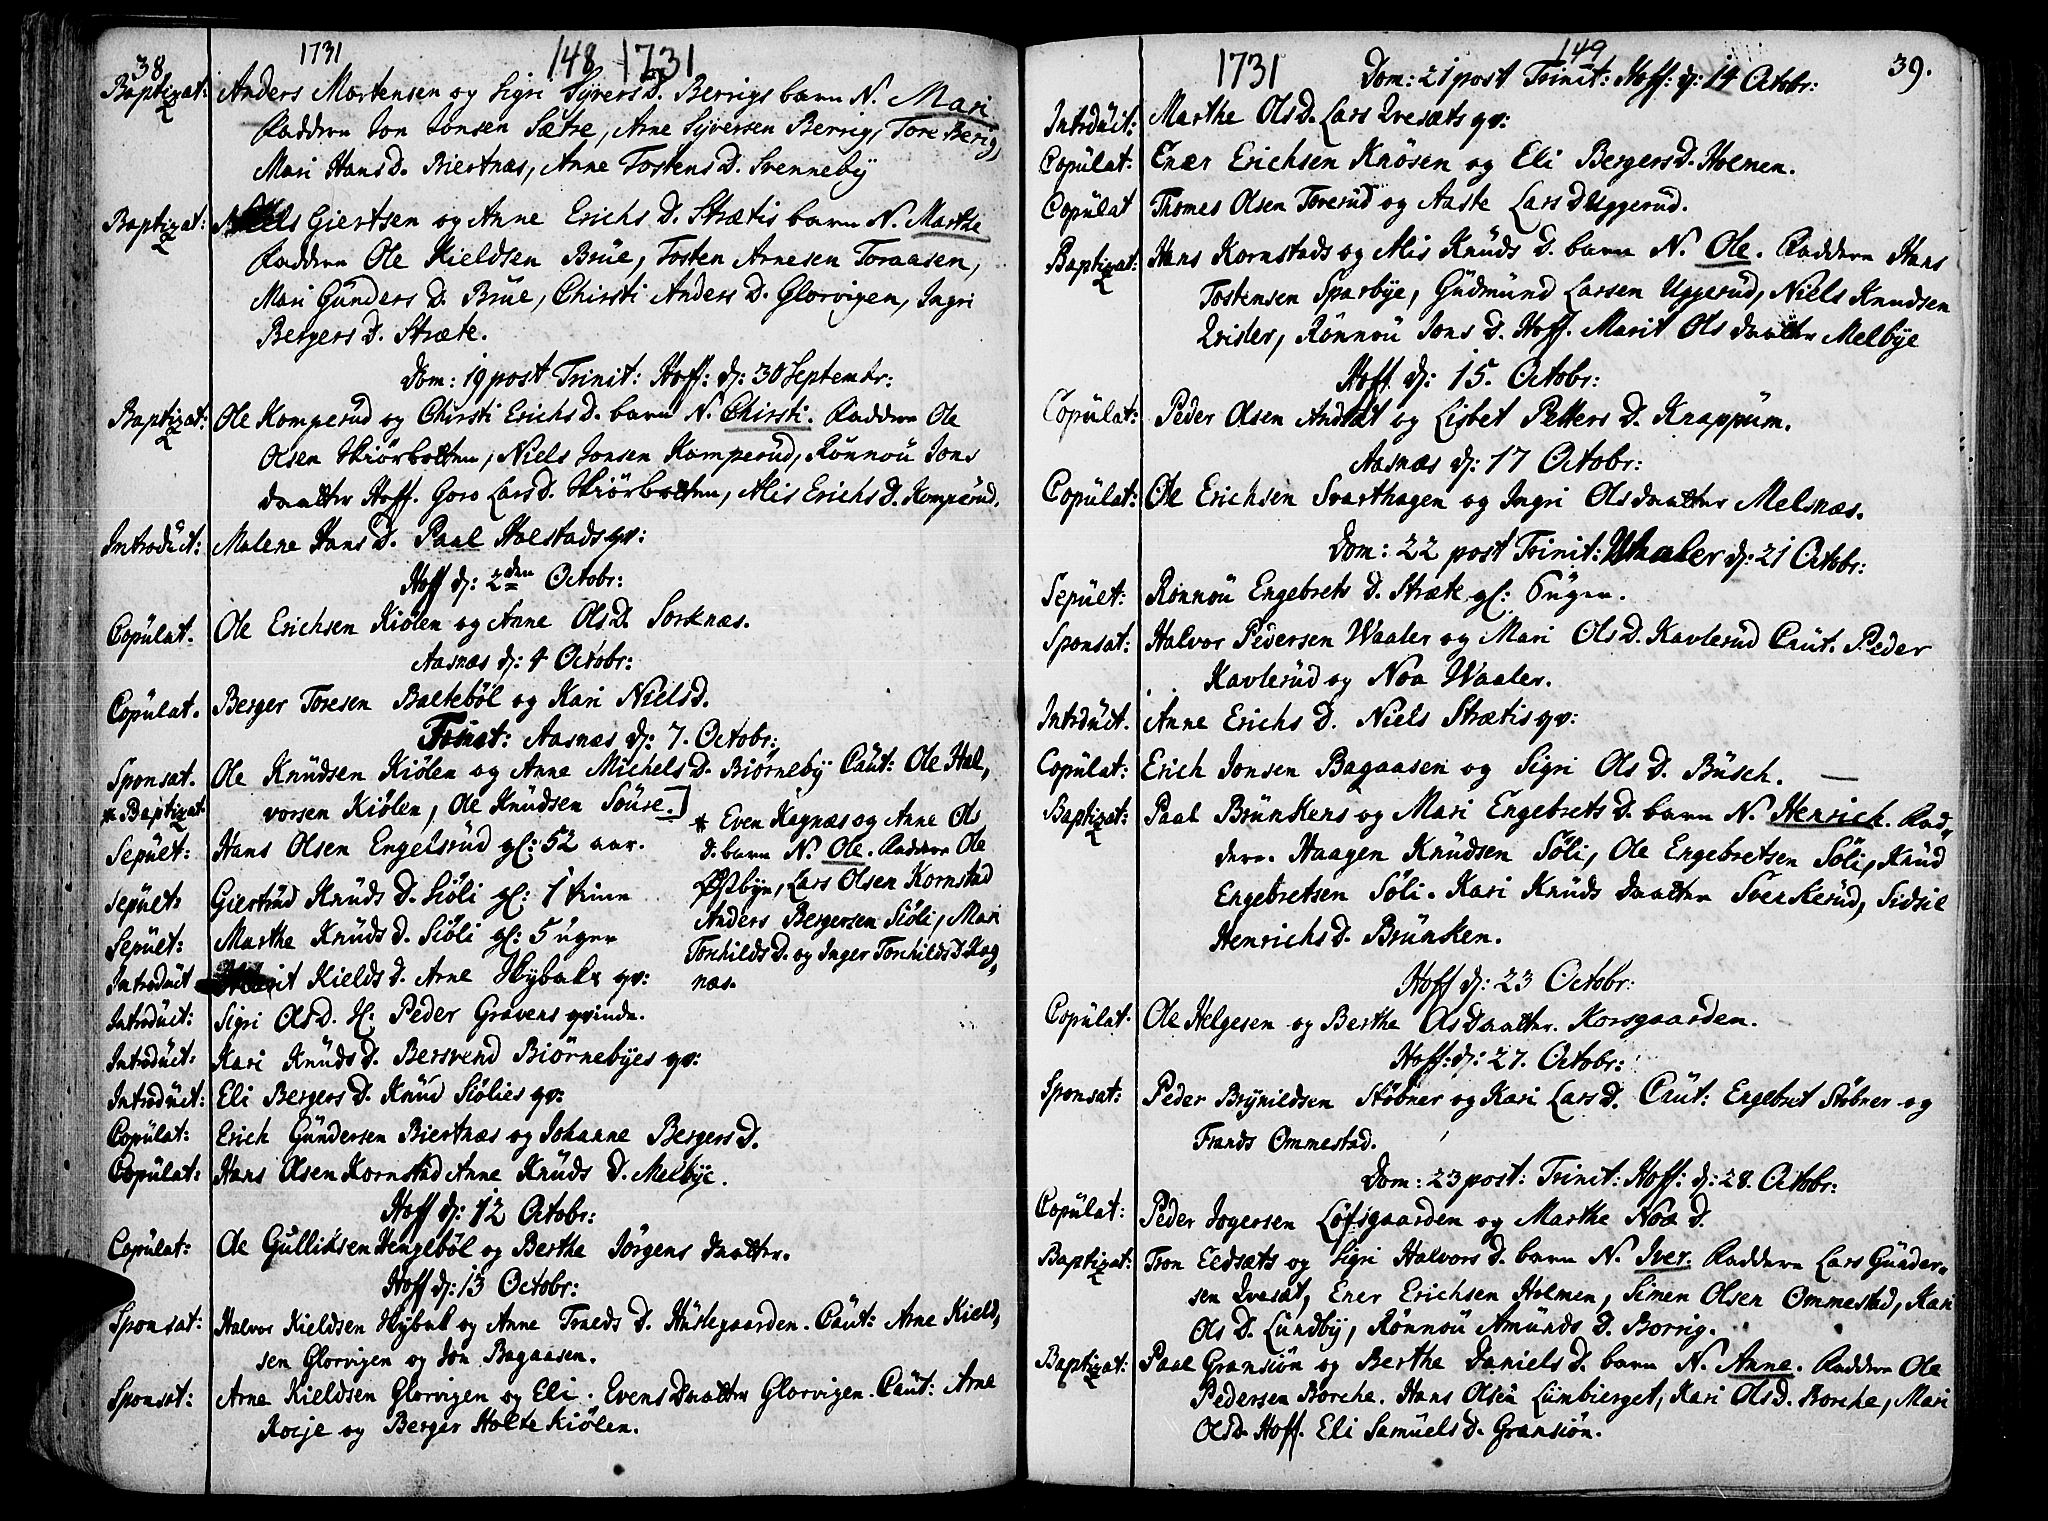 38 1731 148 1731
Baptizat: Anders Mortensen og Sigri Syvers D. Berrigs barn N. Mari
Faddere Jon Jonsen Sætre, Arne Syversen Berrig, Tore Berig,
Mari Hans D. Biertnæs, Anne Tostens D. Svenneby
Baptizat: Niels Giertsen og Anne Erichs D. Strætis barn N. Marthe
Faddere Ole Kieldsen Brüe, Tosten Arnesen Toraasen,
Mari Günders D. Brüe, Chirsti Anders D. Glorvigen, Ingri
Bergers D. Stræte.
Dom: 19 post Trinit: Hoff: d: 30 Septembr:
Baptizat: Ole Komperud og Chirsti Erichs D. barn N. Chirsti. Faddere Ole
Olsen Skiörbolten, Niels Jonsen Komperüd, Rönnoü Jons
daatter Hoff. Goro Lars D. Skiörbolten, Alis Erichs D. Komperud.
Introduct: Malene Hans D. Paal Holstads qv:
Hoff d: 2den Octobr:
Copülat. Ole Erichsen Kiölen og Anne Ols D. Sorknæs.
Aasnæs d: 4 Octobr:
Copülat. Berger Toresen Balteböl og Kari Niels D.
Aasnæs d: 7. Octobr:
Sponsat. Ole Knüdsen Kiölen og Anne Michels D. Biörneby Caüt: Ole Hal,
vorsen Kiölen, Ole Knüdsen Soüse.]
* Baptizat * Even Kagnæs og Anne Ols
D. barn N. Ole. Faddere Ole
Östbye, Lars Olsen Kornstad
Anders Bergersen Siöli, Mari
Torchilds D. og Inger Torchilds D Kag,
næs.
Sepült: Hans Olsen Engelsrüd gl: 52 aar.
Sepült: Giertrüd Knüds D. Siöli gl: 1 time
Sepült: Marthe Knüds D. Siöli gl: 5 uger
Introduct Marit Kields D. Arne Skybaks qv:
Introdüct: Sigri Ols D. H. Peder Gravens qvinde.
Introdüct: Kari Knüds D. Bersvend Biörnebyes qv:
Introdüct: Eli Bergers D. Knüd Siölies qv:
Copülat: Erich Gündersen Biertnæs og Johanne Bergers D.
Copülat: Hans Olsen Kornstad Anne Knüds D. Melbye.
Hoff d: 12 Octobr:
Copülat: Ole Gulliksen Hengeböl og Berthe Jörgens daatter.
Hoff d: 13 Octobr:
Sponsat: Halvor Kieldsen Skybak og Anne D. Caüt: Arne Kield,
sen Glorvigen og Jon Bagaasen.
Sponsat: Arne Kieldsen Glorvigen og Eli Evens Daatter Glorvigen. Caüt: Arne
og Berger Holte Kiölen.
1731 149 39.
Dom: 21 post Trinit: Hoff: d: 14 Octobr:
Introduct: Marthe Ols D. Lars Qvesæts qv:
Copülat: Enær Erichsen Knösen og Eli Bergers D. Holmen.
Copülat Thomes Olsen Torerüd og Aaste Lars D Uggerud.
Baptizat: Hans Kornstads og Alis Knüds D. barn N. Ole. Faddere Hans
Tostensen Sparbye, Güdmünd Larsen Uggerud, Niels Knudsen
Qvisler, Rönnoü Jons D. Hoff. Marit Ols daatter Melbye
Hoff d: 15. Octobr:
Copülat: Peder Olsen og Lisbet Petters D. Knappüm.
Aasnæs d: 17 Octobr:
Copülat: Ole Erichsen Svarthagen og Ingri Olsdaatter Melsnæs.
Dom: 22 post Trinit: Whaaler d: 21 Octobr:
Sepült: Rönnoü Engebrets D. Stræte gl: 6 uger.
Sponsat: Halvor Pedersen Waaler og Mari Ols D. Kavlerüd Caut. Peder
Kavlerüd og Noa Waaler.
Introdüct. Anne Erichs D. Niels Strætis qv:
Copülat: Erich Jonsen Bagaasen og Sigri Ols D. Büsch.
Baptizat: Paal Brünkens og Mari Engebrets D. barn N. Henrich. Fad,
dere. Haagen Knüdsen Söli, Ole Engebretsen Söli, Knüd
Engebretsen Söli. Kari Knüds daatter Sverkerüd, Sidsil
Henrichs D. Brünken.
Hoff d: 23 Octobr:
Copülat. Ole Helgesen og Berthe Olsdaatter. Korsgaarden.
Hoff: d: 27. Octobr:
Sponsat: Peder Brynildsen Stöbner og Kari Lars D. Caüt: Engebret Stöbner og
Frands Ommestad.
Dom: 23 post: Trinit: Hoff: d: 28. Octobr:
Copülat: Peder Jogersen Löfsgaarden og Marthe Noa D.
Baptizat: Tron Eidsæts og Sigri Halvors D. barn N. Iver. Faddere Lars Günder,
sen Qvesæt, Ener Erichsen Holmen, Simen Olsen Ommestad, Kari
Ols D. Lundby, Rönnoü Amünds D. Borrig.
Baptizat: Paal Gransiön og Berthe Daniels D. barn N. Anne. Faddere Ole
Pedersen Borche. Hans Olsen Lumbierget, Kari Ols D. Borche, Mari
Ols D. Hoff. Eli Samüels D. Gransiön.